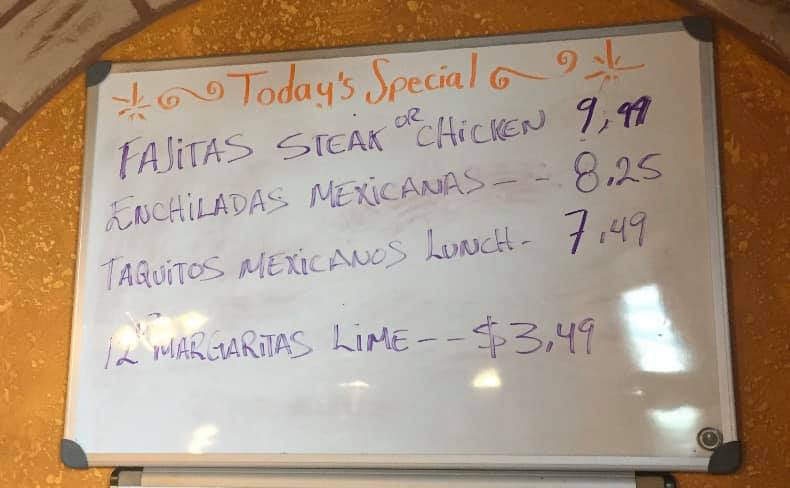 Today's Special
FAJITAS STEAK OR CHICKEN 9,99
ENCHILADAS MEXICANAS-- 8.25
TAQUITOS MEXICANOS LUNCH- 7.49
12 MARGARITAS LIME--$3.49